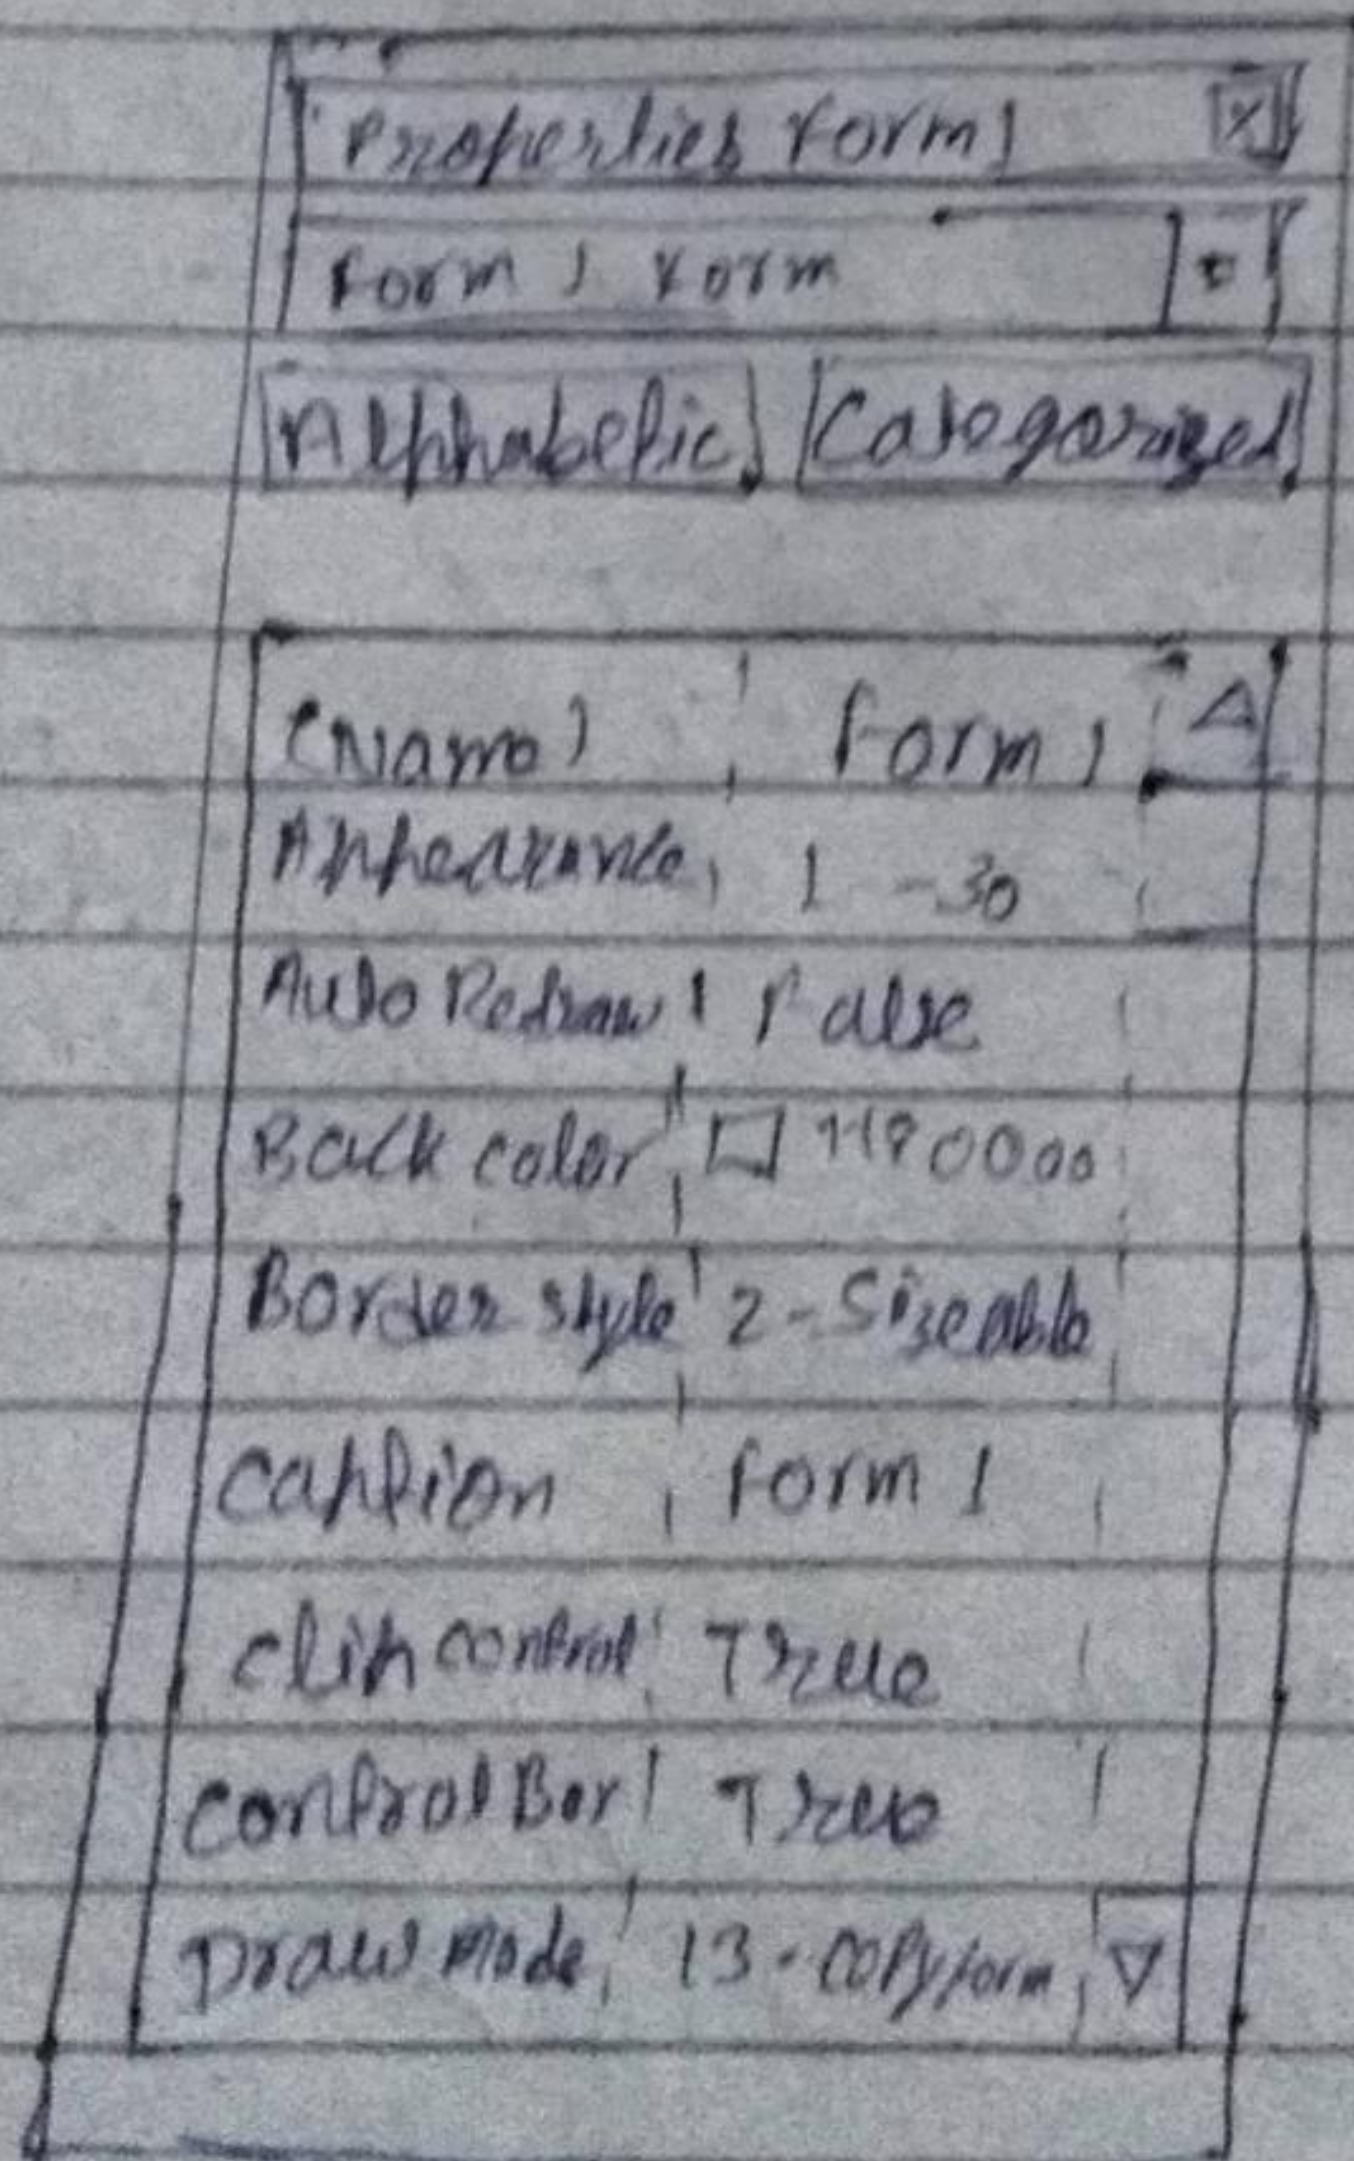 Properties Form 1 X
Form 1 Form
Alphabetic Categorized
(Name) Form 1
Appearance 1 - 3D
Auto Redraw False
Back color
Border style 2 - Sizeable
Caption Form 1
clip control True
control Box True
Draw mode 13 - Copy form